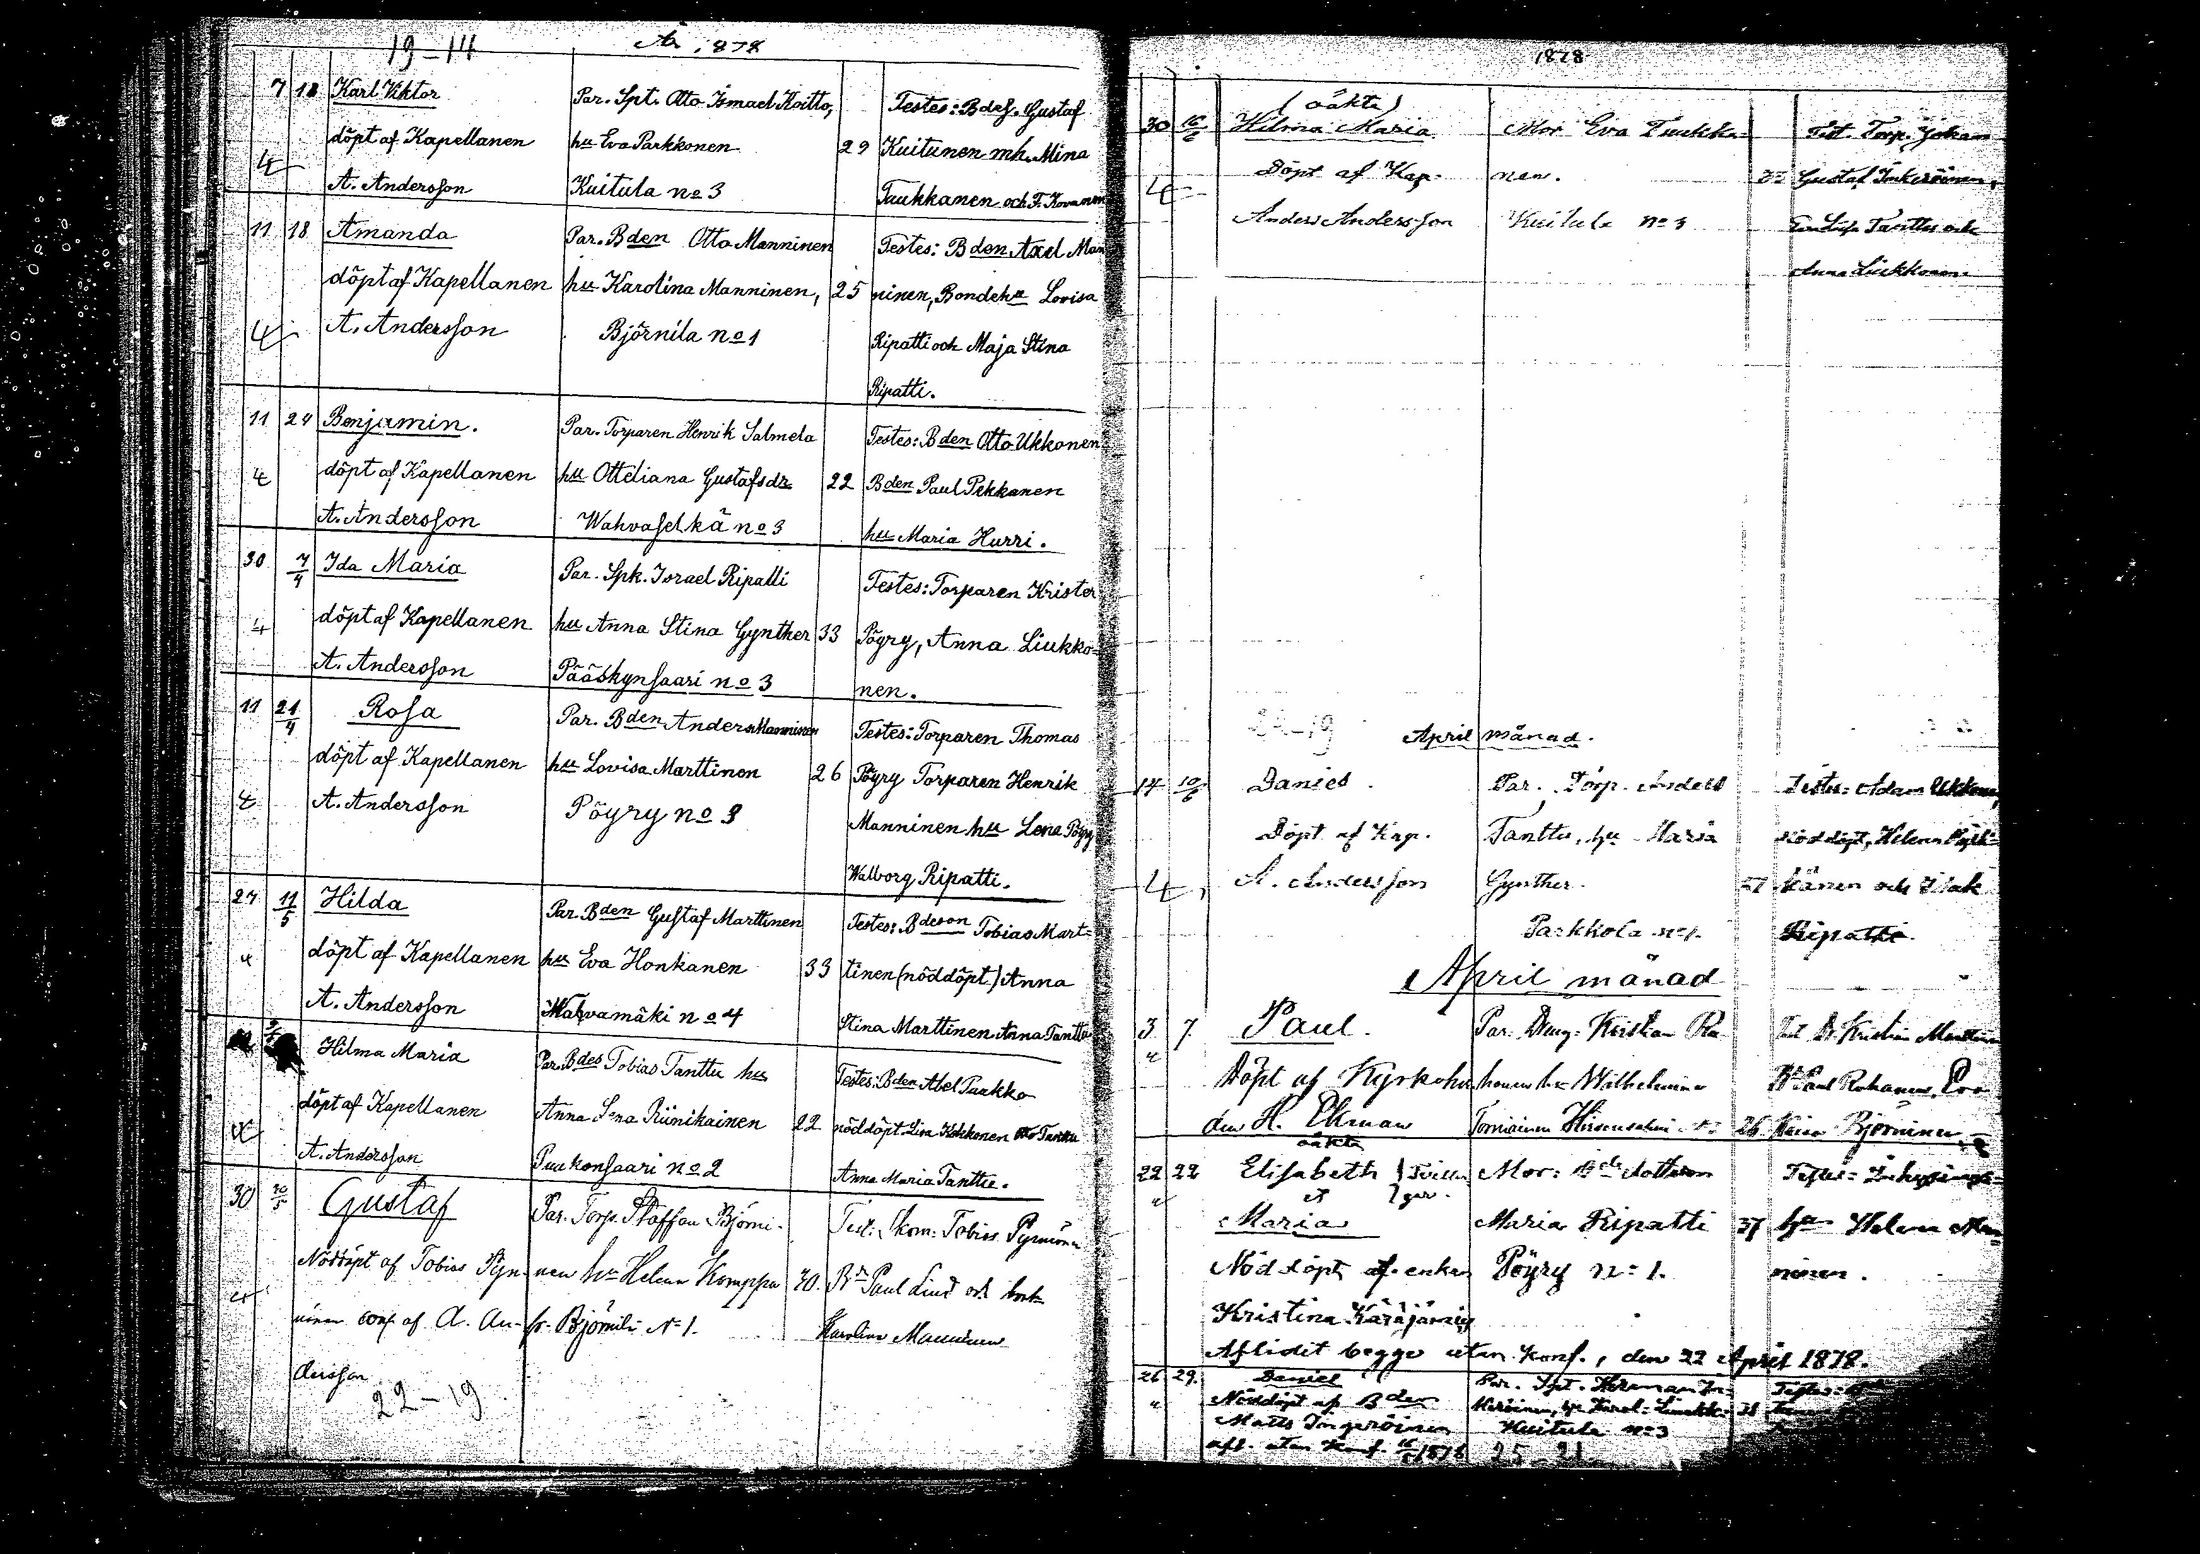 19-14 År 1878
7 18 Karl Viktor Par. Spt. Otto Ismael Koitto, Testes: Bdes. Gustaf
döpt af Kapellanen hu Eva Parkkonen 29 Kuitunen mh. Mina
4 A. Andersson Kuitula no 3 Tuukkanen och F. Kovanen
11 18 Amanda Par. Bden Otto Manninen Testes: Bden Axel Man
döpt af Kapellanen hu Karolina Manninen, 25 ninen, Bondehu Lovisa
4 A. Andersson Björnila no 1 Ripatti och Maja Stina
Ripatti.
11 24 Benjamin. Par. Torparen Henrik Salmela Testes: Bden Otto Ukkonen
4 döpt af Kapellanen hu Otteliana Gustafsdr 22 Bden Paul Pekkanen
A. Andersson Wahvaselkä no 3 hu Maria Hurri.
30 7/4 Ida Maria Par. Spk. Israel Ripatti Testes: Torparen Krister
4 döpt af Kapellanen hu Anna Stina Gynther 33 Pöyry, Anna Liukko=
A. Andersson Pääskynsaari no 3 nen.
11 21/4 Rosa Par. Bden Anders Manninen Testes: Torparen Thomas
döpt af Kapellanen hu Lovisa Marttinen 26 Pöyry Torparen Henrik
4 A. Andersson Pöyry no 3 Manninen hu Lena Pöyry
Walborg Ripatti.
27 11/5 Hilda Par. Bden Gustaf Marttinen Testes: Bdeson Tobias Mart=
döpt af Kapellanen hu Eva Honkanen 33 tinen (nöddöpt) Anna
A. Andersson Wahvamäki no 4 Stina Marttinen Anna Tanttu
Hilma Maria Par. Bdes Tobias Tanttu hu Testes: Bden Abel Paakko
döpt af Kapellanen Anna Lena Riinikainen 22 nöddöpt Lisa Kokkonen Tanttu
A. Andersson Puukonsaari no 2 Anna Maria Tanttu.
30 Gustaf Par. Torp. Staffan Björni- Test: Skom: Tobias Pyrnönen
Nöddöpt af Tobias Pyr- nen hu Helena Komppa 30. Bn Paul Lind och
nönen conf. af A. An- fr. Björnilä No 1. Karolina Manninen
dersson
22-19
1878
(oäkta)
30 Hilma Maria Mor Eva Tuukka= Test. Torp. Johan
4 Döpt af Kap. nen. Gustaf Inkeröinen,
Anders Andersson Kuitula no 3 Tanttu och
Anna Liukkonen.
22-19 April månad.
14 10/6 Daniel Par. Torp. Anders Testes: Adam Ukkonen,
Döpt af Kap. Tanttu, hu Maria nöddöpt, Helena
4 A. Andersson Gynther. 27 känen och Isak
Parkkola no 1. Ripatti.
April månad
3 7. Paul. Par. Kristian Ra- Kristian Marttinen
Döpt af Kyrkoher- hu Wilhelmina Paul Rahanen,
den H. Ekman Torniainen Hirsensalmi 26 Björninen
oäkta
22 22 Elisabeth } Tvillin Mor: Bde dotteren Testes: Inhysings=
et } gar.
Maria Maria Ripatti 37 hu Helena Man=
Nöddöpt af enkan Pöyry no 1. ninen.
Kristina Käräjämies
Aflidit begge utan konf., den 22 April 1878.
26 29. Daniel Par. Spt. Herman In-
Nöddöpt af Bden
Matts Ingeröinen Kuitula no 3
afl. utan konf. 1878 25-21